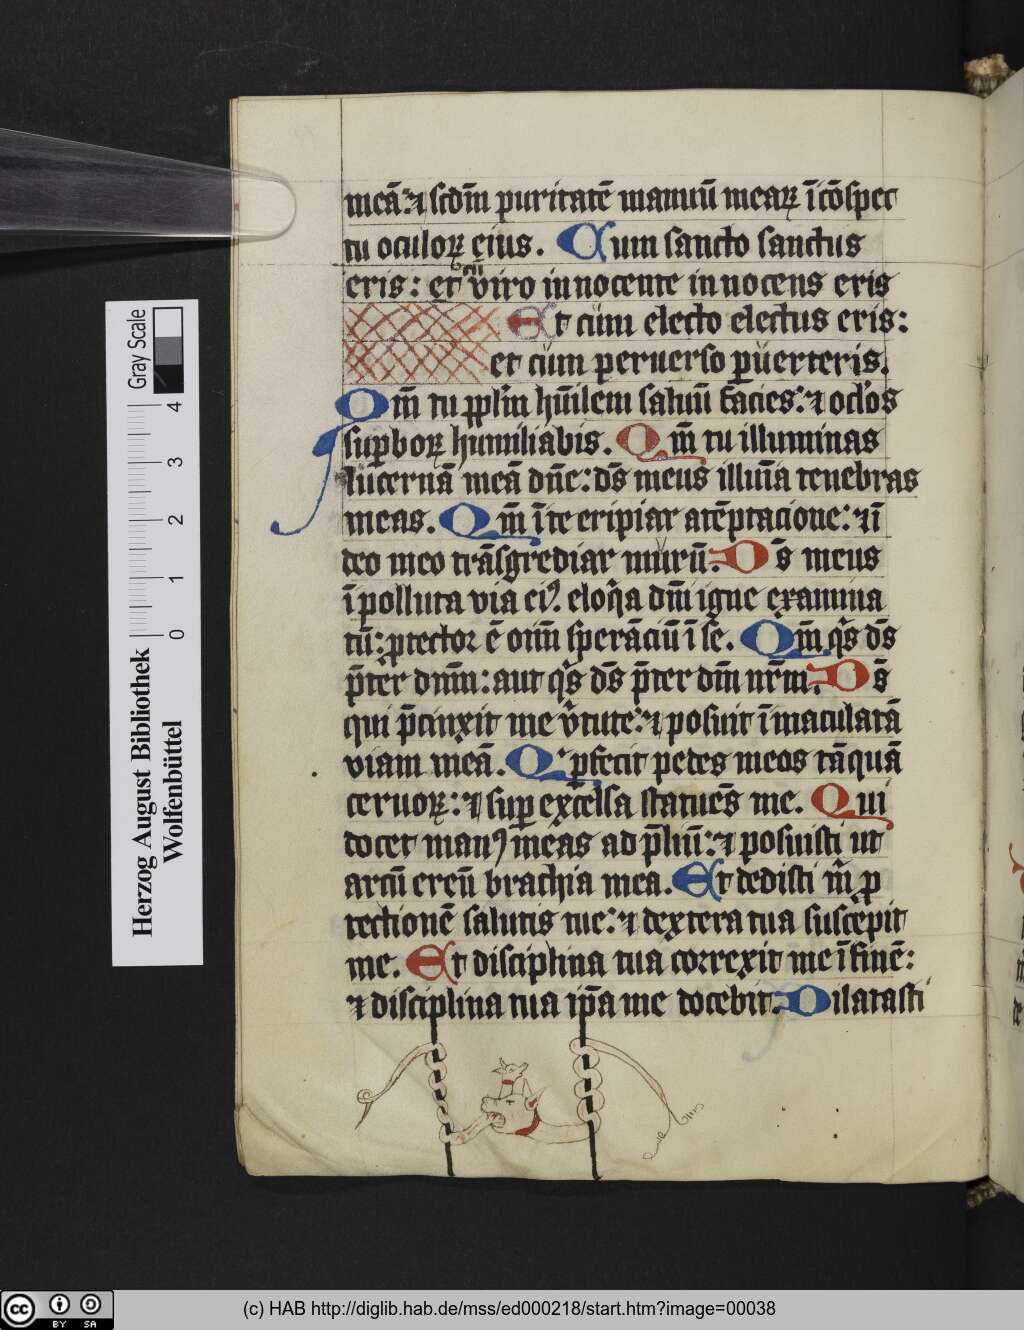 meā: ⁊ scdm̄ puritatē manuū mearꝝ ī cōspec
tu oculoꝝ eius. Cum sancto sanctus
eris: et cū viro innocente innocens eris
Et cum electo electus eris:
et cum peruerso puerteris.
Qm̄ tu pplm̄ hūilem saluū facies: ⁊ oclos
supboꝝ humiliabis. Qm̄ tu illuminas
lucernā meā dn̄e: ds̄ meus illuīa tenebras
meas. Qm̄ ī te eripiar a tēptacione: ⁊ ī
deo meo trāsgrediar murū. Ds̄ meus
īpolluta via eiꝰ eloq̄a dm̄ igne examina
tū: ꝓtector ē om̄ sperāciū ī se. Qm̄ qs ds̄
p̄ter dnm̄: aut qs ds̄ p̄ter dm̄ nr̄m. Ds̄
qui p̄cinxit me v̄tute: ⁊ posuit īmaculatā
viam meā. Q ꝑfecit pedes meos tāquā
ceruoꝝ: ⁊ suꝑ excelsa statuēs me. Qui
docet manꝰ meas ad p̄liū: ⁊ posuisti ut
arcū ereū brachia mea. Et dedisti m̄ ꝓ
tectionē salutis tue: ⁊ dextera tua suscepit
me. Et disciplina tua correxit me ī finē:
⁊ disciplina tua ip̄a me docebit. Dilatasti
Gray Scale
4
3
2
1
0
Herzog August Bibliothek
Wolfenbüttel
cc BY SA
(c) HAB http://diglib.hab.de/mss/ed000218/start.htm?image=00038